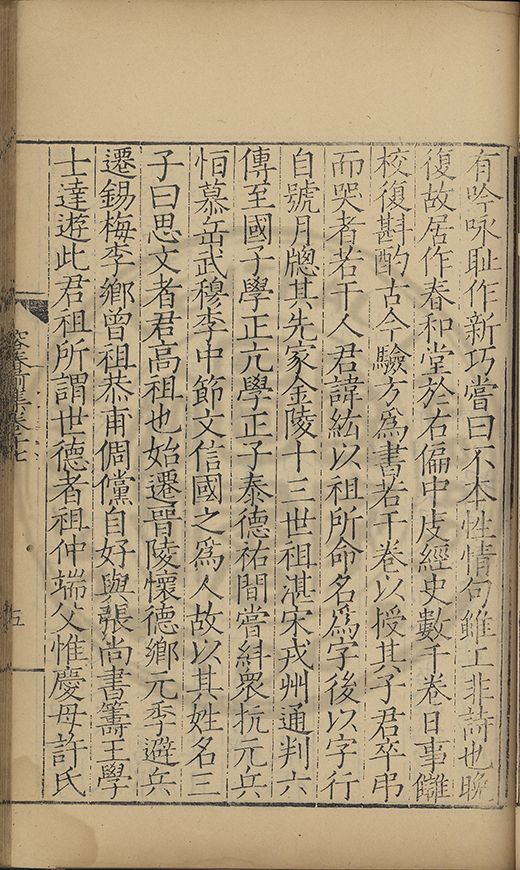 有吟咏耻作新巧嘗曰不本性情句雖工非詩也晩
復故居作春和堂於右偏中庋經史數千卷日事讎
校復斟酌古今驗方爲書若干卷以授其子君卒弔
而哭者若干人君諱紘以祖所命名爲字後以字行
自號月牕其先家金陵十三世祖湛宋戎州通判六
傳至國子學正亢學正子泰德祐間嘗糾衆抗元兵
恒慕岳武穆李中節文信國之爲人故以其姓名三
子曰思文者君高祖也始遷晉陵懷德鄉元季避兵
遷錫梅李鄉曾祖恭甫倜儻自好與張尚書籌王學
士達遊此君祖所謂世德者祖仲端父惟慶母許氏
容春前集卷十七
五